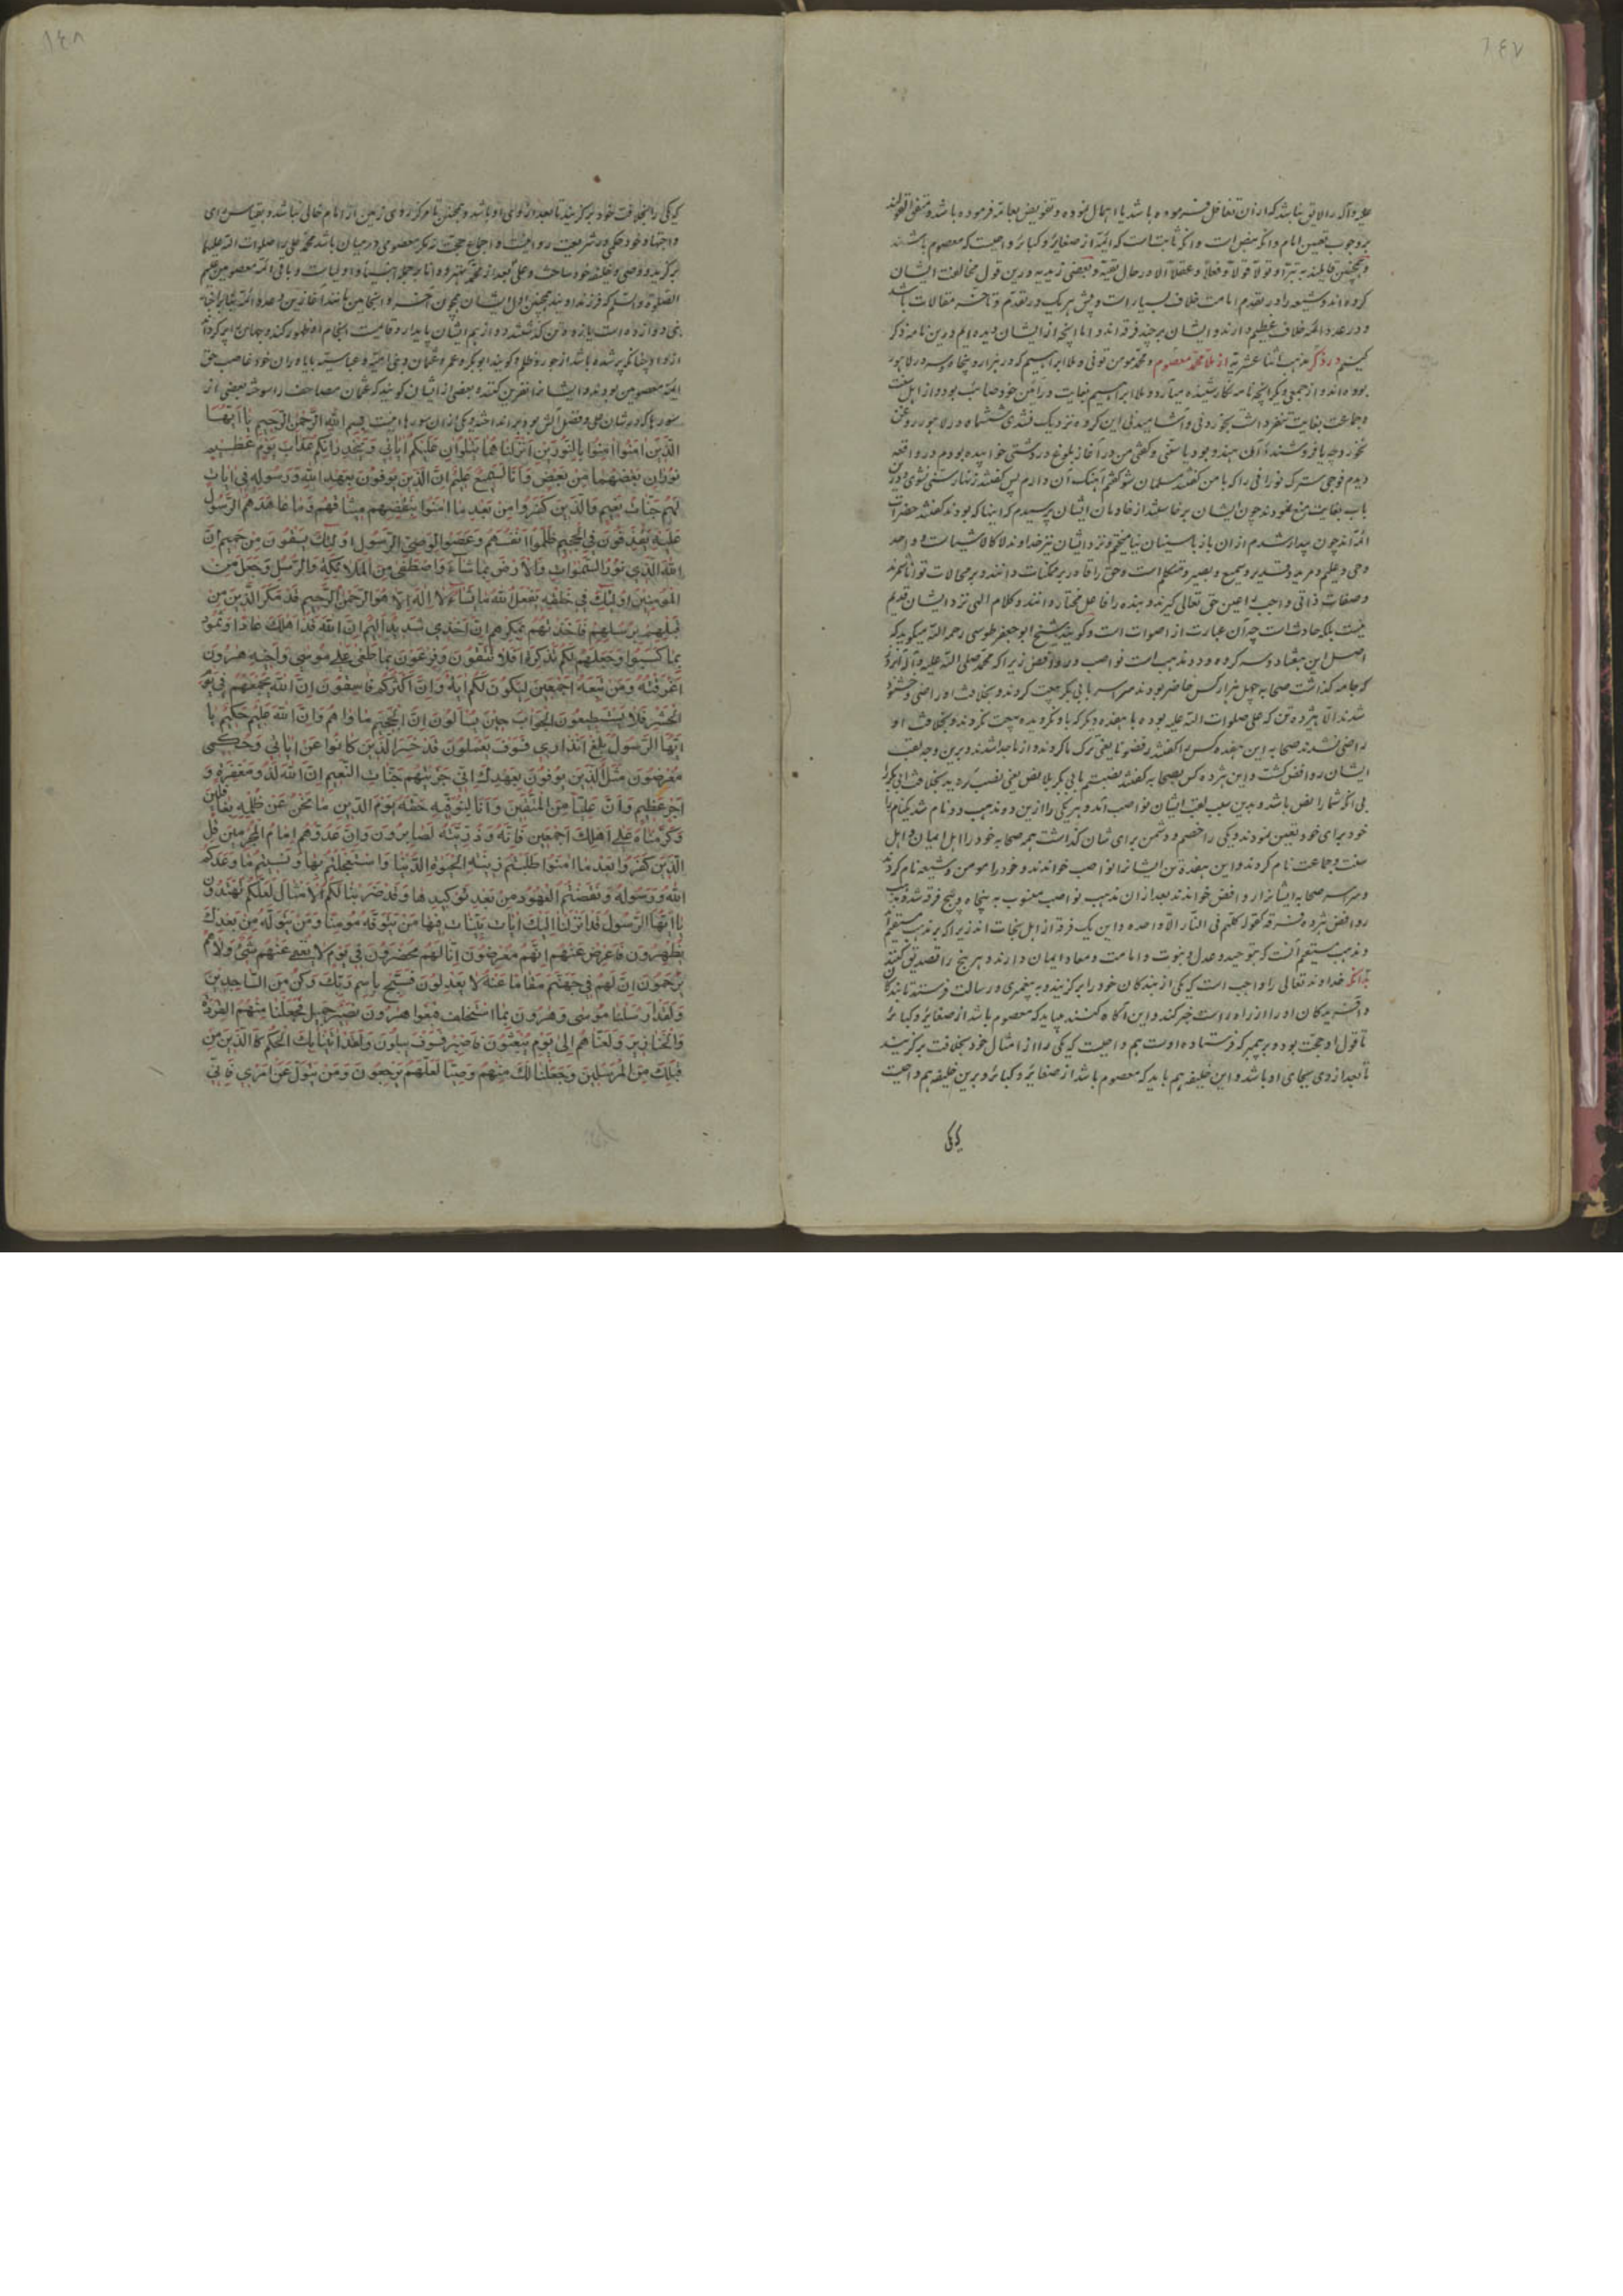 ١٤٧
علیه وآله را لایق نباشد که از آن تغافل فرموده باشد یا اهمال نموده و تفویض بعامه فرموده باشد و متفق القولند
بر وجوب تعیین امام و آنکه بنص است و آنکه ثابت است که ائمه از صغایر و کبایر واجبست که معصوم باشند
و همچنین قایلند به تبرا و تولا قولاً و فعلاً و عقلاً الا در حال تقیه و بعضی زیدیه درین قول مخالفت ایشان
کرده اند و شیعه را در تقدم امامت خلاف بسیار است و پیش هر یک در تقدم و تأخر مقالات باشد
و در عدد ائمه خلاف عظیم دارند و ایشان بر چند فرقه اند و اما آنچه از ایشان دیده ایم درین نامه ذکر
کنیم در ذکر مذهب اثنا عشریه از ملا محمد معصوم و محمد مومن تونی و ملا ابراهیم که در هزار و پنجاه و سه در لاهور
بوده اند و از جمعی دیگر آنچه نامه نگار شنیده میآرد و ملا ابراهیم بغایت در آئین خود صائب بود و از اهل سنت
و جماعت بغایت متنفر داشت بخوردنی و آشامیدنی این کروه نزدیک نشدی ششماه در لاهور روغن
نخورد چه بافروشنده آن هندو بود یا سنی و گفتی من در آغاز بلوغ در دشتی خوابیده بودم در واقعه
دیدم فوجی سترک نورانی را که با من گفتند مسلمان شو گفتم آهنگ آن دارم پس گفتند زنهار سنی نشوی و درین
باب بغایت منع نمودند چون ایشان برخاستند از خادمان ایشان پرسیدم که اینها که بودند گفتند حضرات
ائمه اند چون بیدار شدم از ان باز با سنیان نیامیختم و نزد ایشان نیز خداوند لا کالاشیاست و احد
وحی و علیم و مرید و قدیر و سمیع و بصیر و متکلم است و حق را قادر بر ممکنات دانند و بر محالات توانا نشمرند
و صفات ذاتی واجب را عین حق تعالی گیرند و بنده را فاعل مختار دانند و کلام الهی نزد ایشان قدیم
نیست بلکه حادث است چه آن عبارت از اصوات است و گویند شیخ ابو جعفر طوسی رحمه الله میگوید که
اصل این هفتاد و سه گروه دو مذهب است نواصب و روافض زیرا که محمد صلی الله علیه وآله آنروز
که جامه گذاشت صحابه چهل هزار کس حاضر بودند همه سر بابی بکر بیعت کردند و بخلافت او راضی و خشنود
شدند الا هژده تن که علی صلوات الله علیه بوده با هفده دیگر که باو گرویده بیعت نکردند و بخلافت او
راضی نشدند صحابه این هفده کس را گفتند رفضونا یعنی ترک ما کردند و از ما جدا شدند و برین وجه لقب
ایشان روافض گشت و این هژده کس بصحابه گفتند نصبتم بابی بکر بلا نص یعنی نصب کرده اید بخلافت ابی بکر را
بی آنکه شما را نص باشد و بدین سبب لقب ایشان نواصب آمد و هر یکی را ازین دو مذهب دو نام شد یکنام را
خود برای خود تعیین نمودند و یکی را خصم و دشمن برای شان گذاشت همه صحابه خود را اهل ایمان و اهل
سنت و جماعت نام کردند و این هفده تن ایشانرا نواصب خواندند و خود را مومن و شیعه نام کردند
و سراسر صحابه ایشانرا روافض خواندند بعد از ان مذهب نواصب منسوب به پنجاه و پنج فرقه شد و مذهب
روافض هژده فرقه کقوله کلهم فی النار الا واحده و این یک فرقه از اهل نجات اند زیرا که بر مذهب مستقیم اند
و مذهب مستقیم آنست که بتوحید و عدل و نبوت و امامت و معاد ایمان دارند و هر پنج را تصدیق کنند
بدانکه خداوند تعالی را واجب است که یکی از بندگان خود را برگزیند و به پیغمبری و رسالت فرستد تا بندگان
و آفریدگان او را از راه راست خبر کند و این آگاه کننده میباید که معصوم باشد از صغایر و کبایر
تا قول او حجت بود و بر پیمبر که فرستاده اوست هم واجبست که یکی را از امثال خود بخلافت برگزیند
تا بعد از وی بجای او باشد و این خلیفه هم باید که معصوم باشد از صغایر و کبایر و برین خلیفه هم واجبست
که یکی
١٤٨
که یکی را بخلافت خود برگزیند تا بعد از او بجای او باشد و همچنین تا هرگز روی زمین از امام خالی نباشد و بقیاس و رای
و اجتهاد خود حکمی در شریعت روا نیست و اجماع حجت نه مگر معصومی در میان باشد محمد علی را صلوات الله علیهما
برگزید و وصی و خلیفه خود ساخت و علی بعد از محمد بهتر و دانا و جمله انبیا و اولیاست و باقی ائمه معصومین علیهم
الصلوة والسلم که فرزندان اویند همچنین اول ایشان چون آخر و انجامین مانند آغازین و عدد ائمه
دوازده است یازده تن گذشتند و دوازدهم ایشان پایدار و قایمست انجام او ظهور کند و جهان را پر کند از
داد چنانکه پر شده باشد از جور و ظلم و گویند ابوبکر و عمر و عثمان و بنی امیه و عباسیه با یاوران خود غاصب حق
ائمه معصومین بودند و ایشانرا نفرین کنند و بعضی از ایشان گویند که عثمان مصاحف را سوخته بعضی از
سورها که در شان علی و فضل آلش بود برانداخت و یکی از ان سورها اینست بسم الله الرحمن الرحیم یا ایها
الذین آمنوا آمنوا بالنورین انزلناهما یتلوان علیکم آیاتی و یحذرانکم عذاب یوم عظیم
نوران بعضهما من بعض و انا لسمیع علیم ان الذین یوفون بعهد الله و رسوله فی آیات
لهم جنات نعیم والذین کفروا من بعد ما آمنوا بنقضهم میثاقهم و ما عاهدهم الرسول
علیه یقذفون فی الجحیم ظلموا انفسهم و عصوا لوصی الرسول اولئک یسقون من حمیم ان
الله الذی نور السموات والارض بما شاء واصطفی من الملائکة والرسل وجعل من
المومنین اولئک فی خلقه یفعل الله ما یشاء لا اله الا هو الرحمن الرحیم قد مکر الذین من
قبلهم برسلهم فاخذتهم بمکرهم ان اخذی شدید الیم ان الله قد اهلک عادا و ثمود
بما کسبوا وجعلهم لکم تذکرة افلا تتقون و فرعون بما طغی علی موسی و اخیه هرون
اغرقته و من تبعه اجمعین لیکون لکم آیة وان اکثرکم فاسقون ان الله یجمعهم فی یوم
الحشر فلا یستطیعون الجواب حین یسألون ان الجحیم ماواهم وان الله علیم حکیم یا
ایها الرسول بلغ انذاری فسوف یعملون قد خسر الذین کانوا عن آیاتی و حکمی
معرضون مثل الذین یوفون بعهدک انی جزیتهم جنات النعیم ان الله لذو مغفرة و
اجر عظیم وان علیا من المتقین وانا لنوفیه حقه یوم الدین ما نحن عن ظلمه بغافلین
وکرمناه علی اهلک اجمعین فانه و ذریته لصابرون وان عدوهم امام المجرمین قل
للذین کفروا بعد ما آمنوا طلبتم زینة الحیوة الدنیا واستعجلتم بها و نسیتم ما وعدکم
الله و رسوله و نقضتم العهود من بعد توکیدها و قد ضربنا لکم الامثال لعلکم تهتدون
یا ایها الرسول قد انزلنا الیک آیات بینات فیها من یتوفه مومنا و من یتوله من بعدک
یظهرون فاعرض عنهم انهم معرضون انا لهم محضرون فی یوم لا یغنی عنهم شئ ولا هم
یرحمون ان لهم فی جهنم مقاما عنه لا یعدلون فسبح باسم ربک وکن من الساجدین
ولقد ارسلنا موسی وهرون بما استخلف فبغوا هرون فصبر جمیل فجعلنا منهم القردة
والخنازیر ولعناهم الی یوم یبعثون فاصبر فسوف یبلون ولقد آتینا بک الحکم کالذین من
قبلک من المرسلین وجعلنا لک منهم وصیا لعلهم یرجعون ومن یتول عن امری فانی